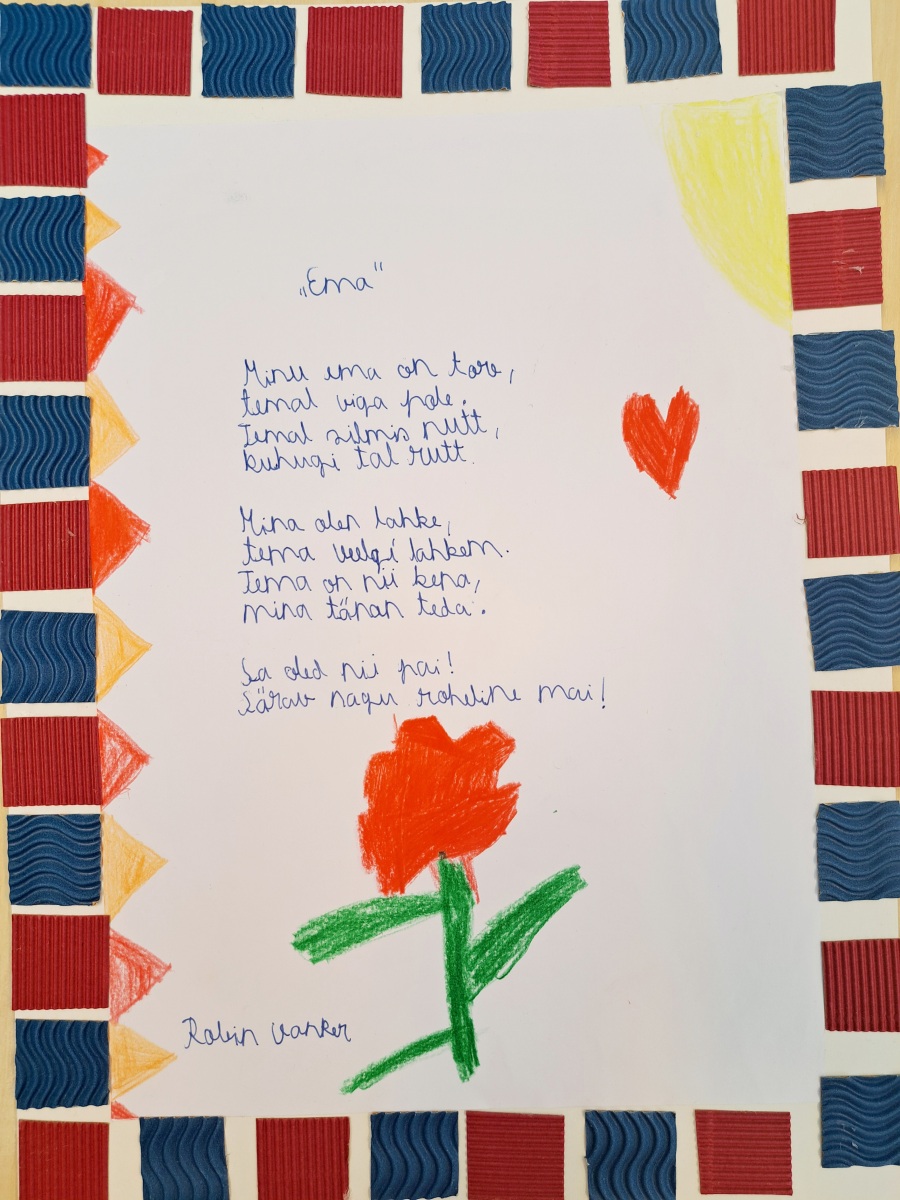 „Ema“
Minu ema on tore,
temal viga pole.
Temal silmis nutt,
kuhugi tal rutt.
Mina olen lahke,
tema veelgi lahkem.
Tema on nii kena,
mina tänan teda.
Sa oled nii pai!
Särav nagu roheline mai!
Robin Vanker